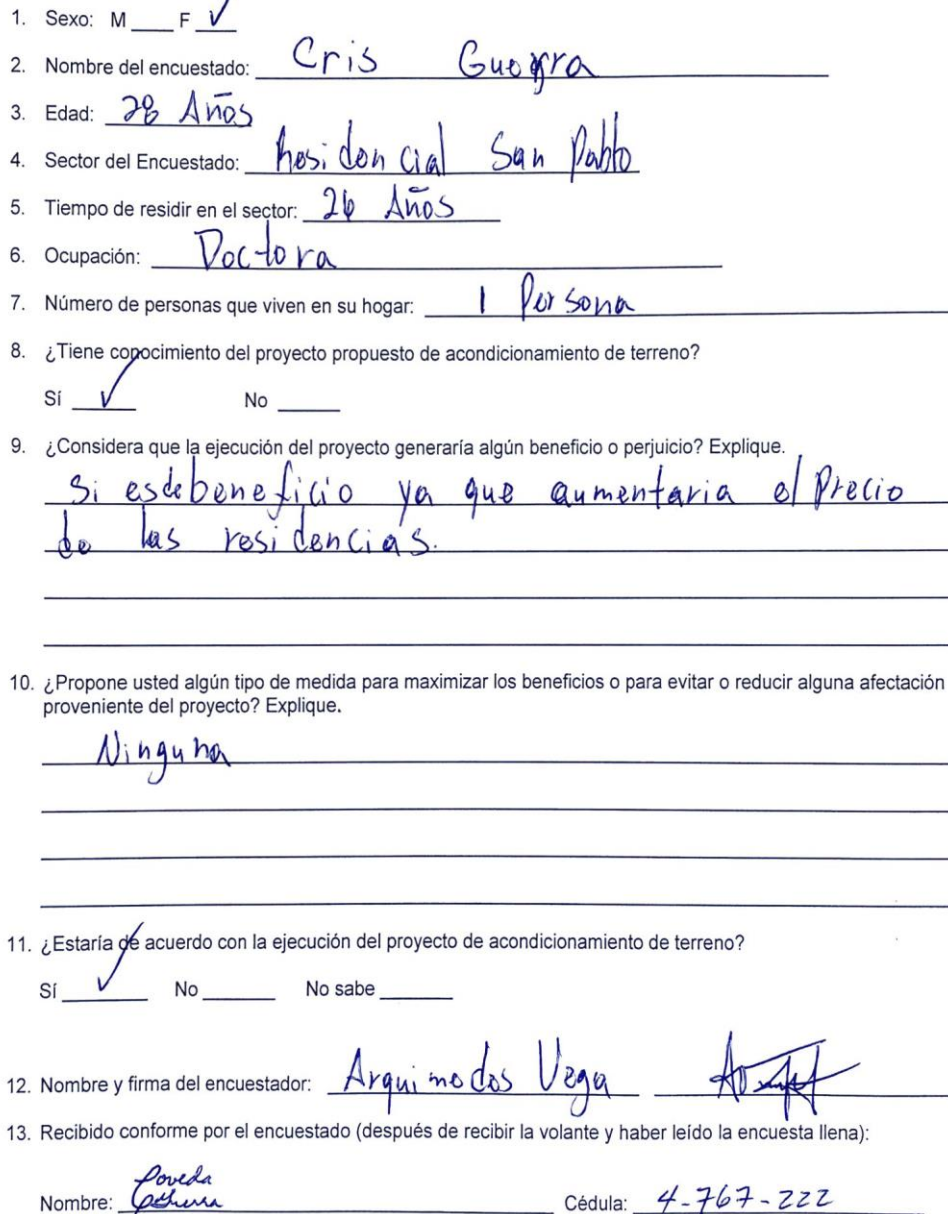 1. Sexo: M ____ F √
2. Nombre del encuestado: Cris Guerra
3. Edad: 28 Años
4. Sector del Encuestado: Residencial San Pablo
5. Tiempo de residir en el sector: 26 Años
6. Ocupación: Doctora
7. Número de personas que viven en su hogar: 1 Persona
8. ¿Tiene conocimiento del proyecto propuesto de acondicionamiento de terreno?
Sí √ No ____
9. ¿Considera que la ejecución del proyecto generaría algún beneficio o perjuicio? Explique.
Si es de beneficio ya que aumentaria el Precio
de las residencias.
10. ¿Propone usted algún tipo de medida para maximizar los beneficios o para evitar o reducir alguna afectación
proveniente del proyecto? Explique.
Ninguna
11. ¿Estaría de acuerdo con la ejecución del proyecto de acondicionamiento de terreno?
Sí √ No ____ No sabe ____
12. Nombre y firma del encuestador: Arquimedes Vega
13. Recibido conforme por el encuestado (después de recibir la volante y haber leído la encuesta llena):
Poveda
Nombre: Cédula: 4-767-222